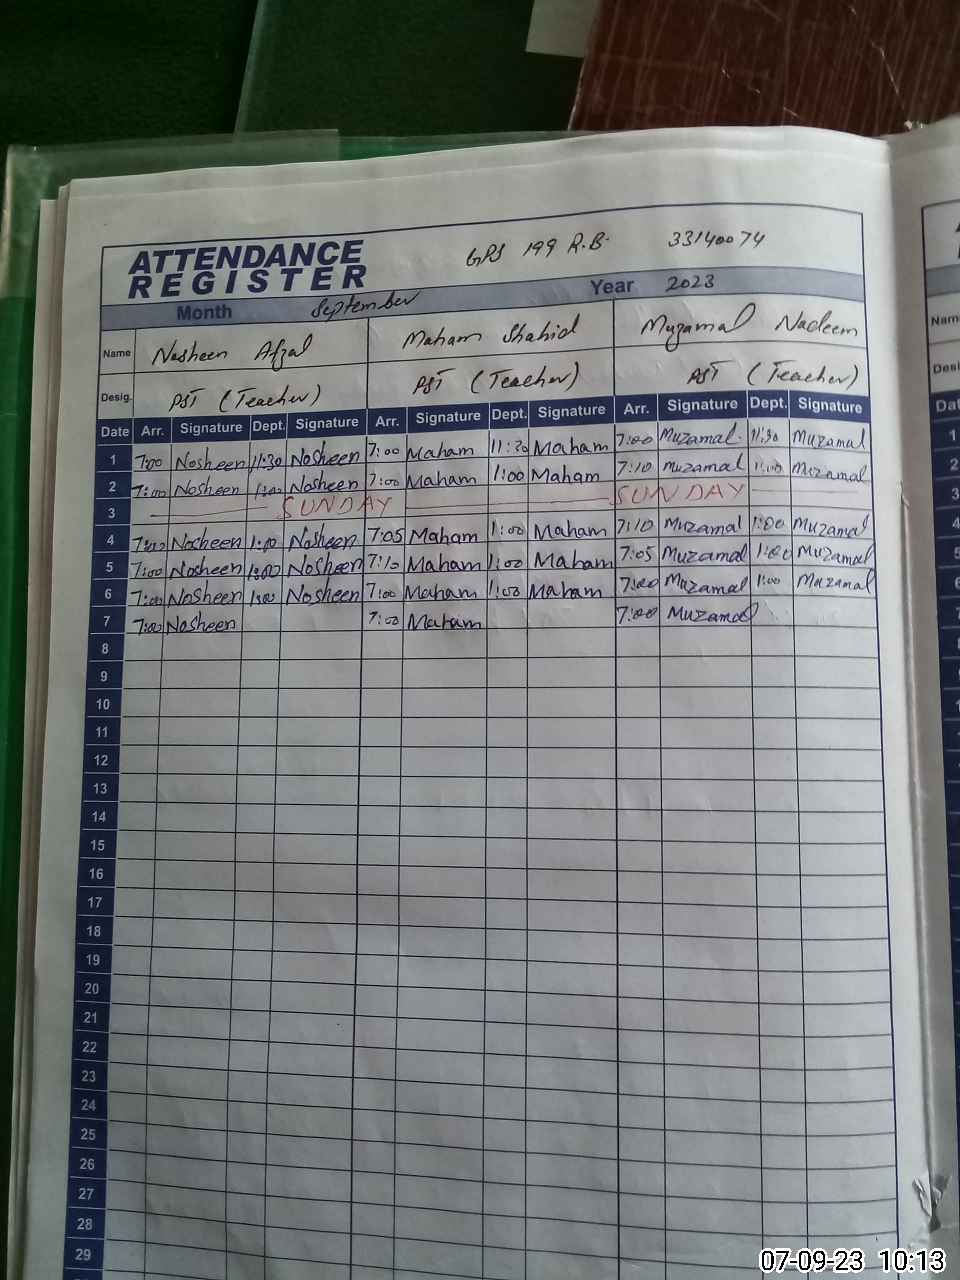 GPS 199 R.B. 33140074
ATTENDANCE
REGISTER
Month September Year 2023
Name Nosheen Afzal Maham Shahid Muzamal Nadeem
Desig. PST (Teacher) PST (Teacher) PST (Teacher)
Date Arr. Signature Dept. Signature Arr. Signature Dept. Signature Arr. Signature Dept. Signature
1 7:00 Nosheen 11:30 Nosheen 7:00 Maham 11:30 Maham 7:00 Muzamal. 11:30 Muzamal
2 7:00 Nosheen 1:00 Nosheen 7:00 Maham 1:00 Maham 7:10 Muzamal 1:00 Muzamal
3 SUNDAY SUNDAY
4 7:00 Nosheen 1:00 Nosheen 7:05 Maham 1:00 Maham 7:10 Muzamal 1:00 Muzamal
5 7:00 Nosheen 1:00 Nosheen 7:10 Maham 1:00 Maham 7:05 Muzamal 1:00 Muzamal
6 7:00 Nosheen 1:00 Nosheen 7:00 Maham 1:00 Maham 7:00 Muzamal 1:00 Muzamal
7 7:00 Nosheen 7:00 Maham 7:00 Muzamal
8
9
10
11
12
13
14
15
16
17
18
19
20
21
22
23
24
25
26
27
28
29
Nam
Desi
Dat
1
2
3
4
5
6
07-09-23 10:13